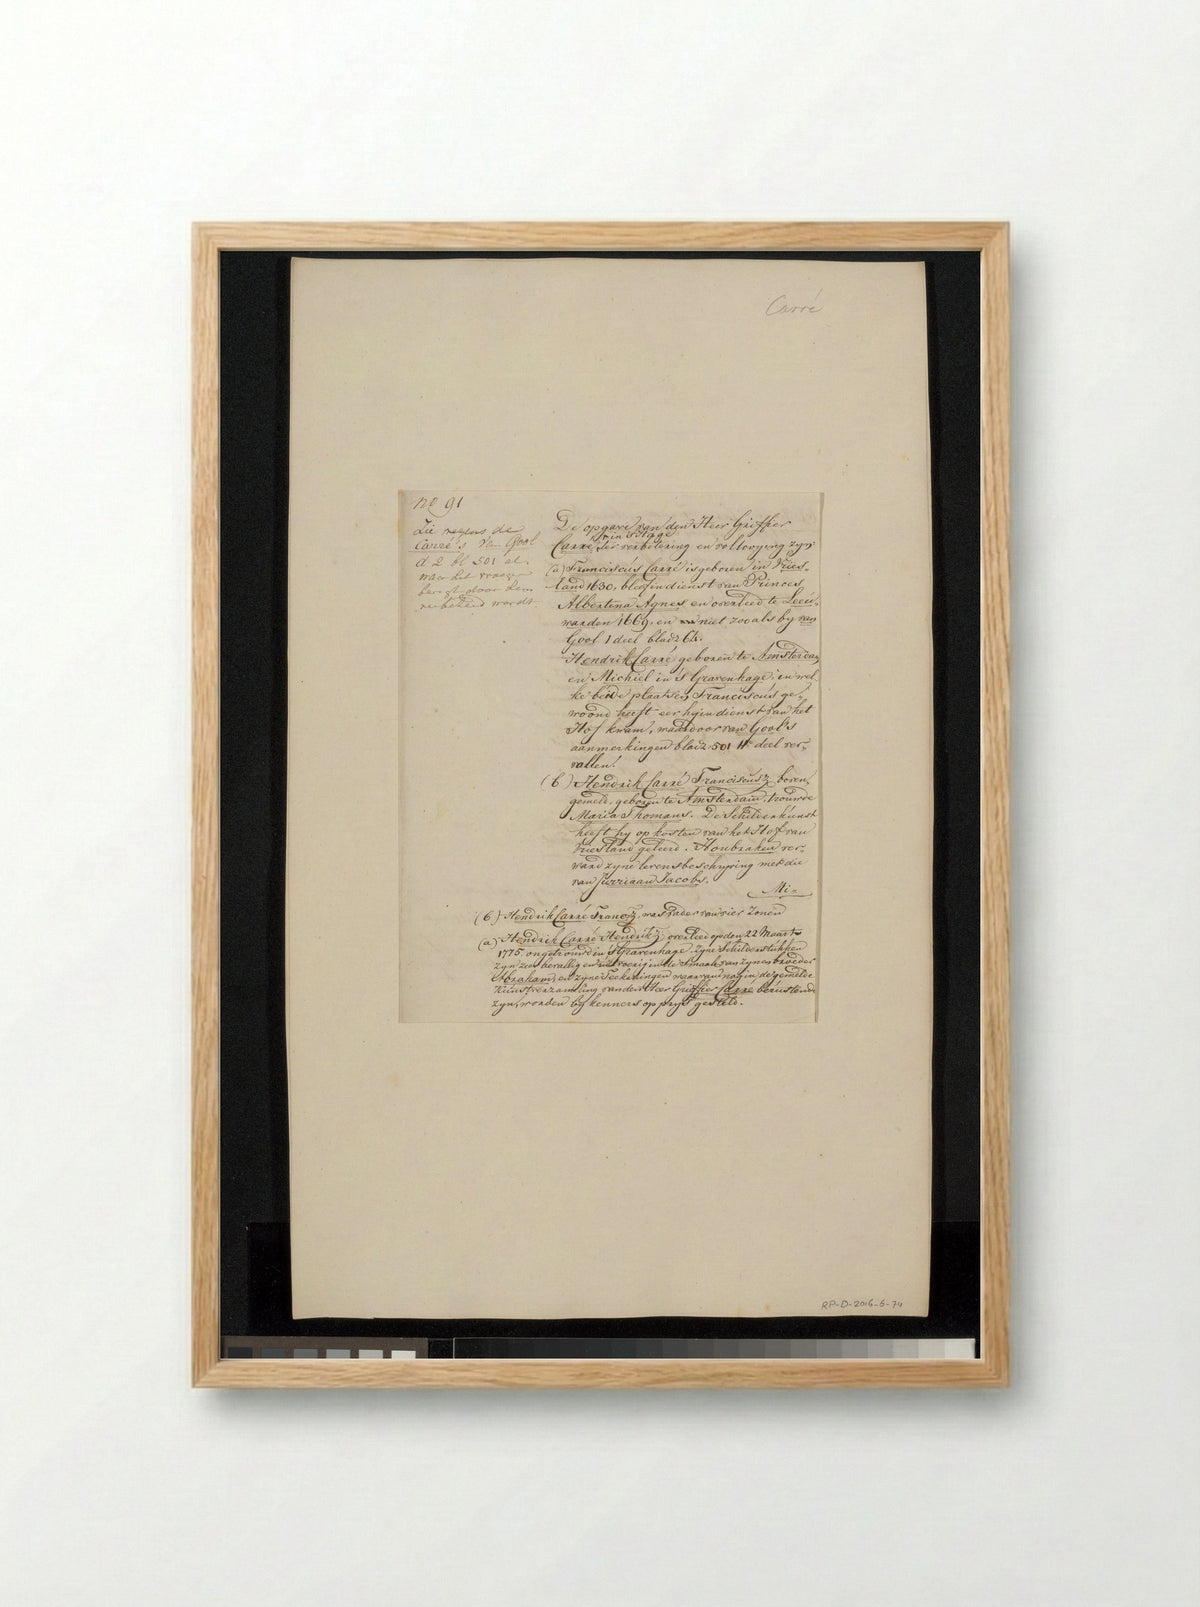 Carré
no 91
Zie wegens de
Carré's Van Gool
d 2 bl 501 al-
waar het voorge-
door hem
verbeterd wordt
De opgave van den Heer Griffier
Carré in 's Hage ter verbetering en voltooying zyn
(a) Franciscus Carré is geboren in Vries-
land 1630, bleef in dienst van Princes
Albertina Agnes en overleed te Leeu-
warden 1669, en niet zooals by van
Gool 1 deel bladz 64.
Hendrik Carré geboren te Amsterdam
en Michiel in 's Gravenhage, in wel-
ke beide plaatsen Franciscus ge-
woond heeft eer hy in dienst van het
Hof kwam, waardoor van Gool's
aanmerkingen bladz 501 II deel ver-
vallen.
(b) Hendrik Carré Franciscusz boven-
gemeld, geboren te Amsterdam, trouwde
Maria Thomans. De Schilderkunst
heeft hy op kosten van het Hof van
Vriesland geleerd. Houbraken ver-
ward zyne levensbeschryving met die
van Jurriaan Jacobs.
Mi-
(b) Hendrik Carré Fransz, was Vader van vier Zonen
(a) Hendrik Carré Hendriksz overleed op den 22 Maart
1775 ongetrouwd in 's Gravenhage. Zyne Schilderstukken
zyn zeer bevallig en in de smaak van zynen broeder
Abraham, en zyne Teekeningen waarvan nog in de gemelde
Kunstverzameling van den Heer Griffier Carré berustende
zyn, worden by kenners op prys gesteld.
RP-D-2016-6-74